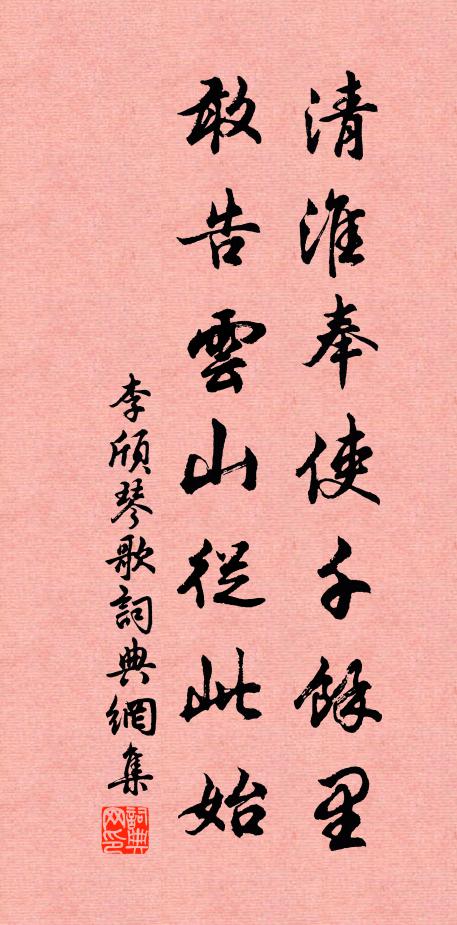 清淮奉使千餘里
敢告雲山從此始
李頎琴歌詞典網集
詞典网印